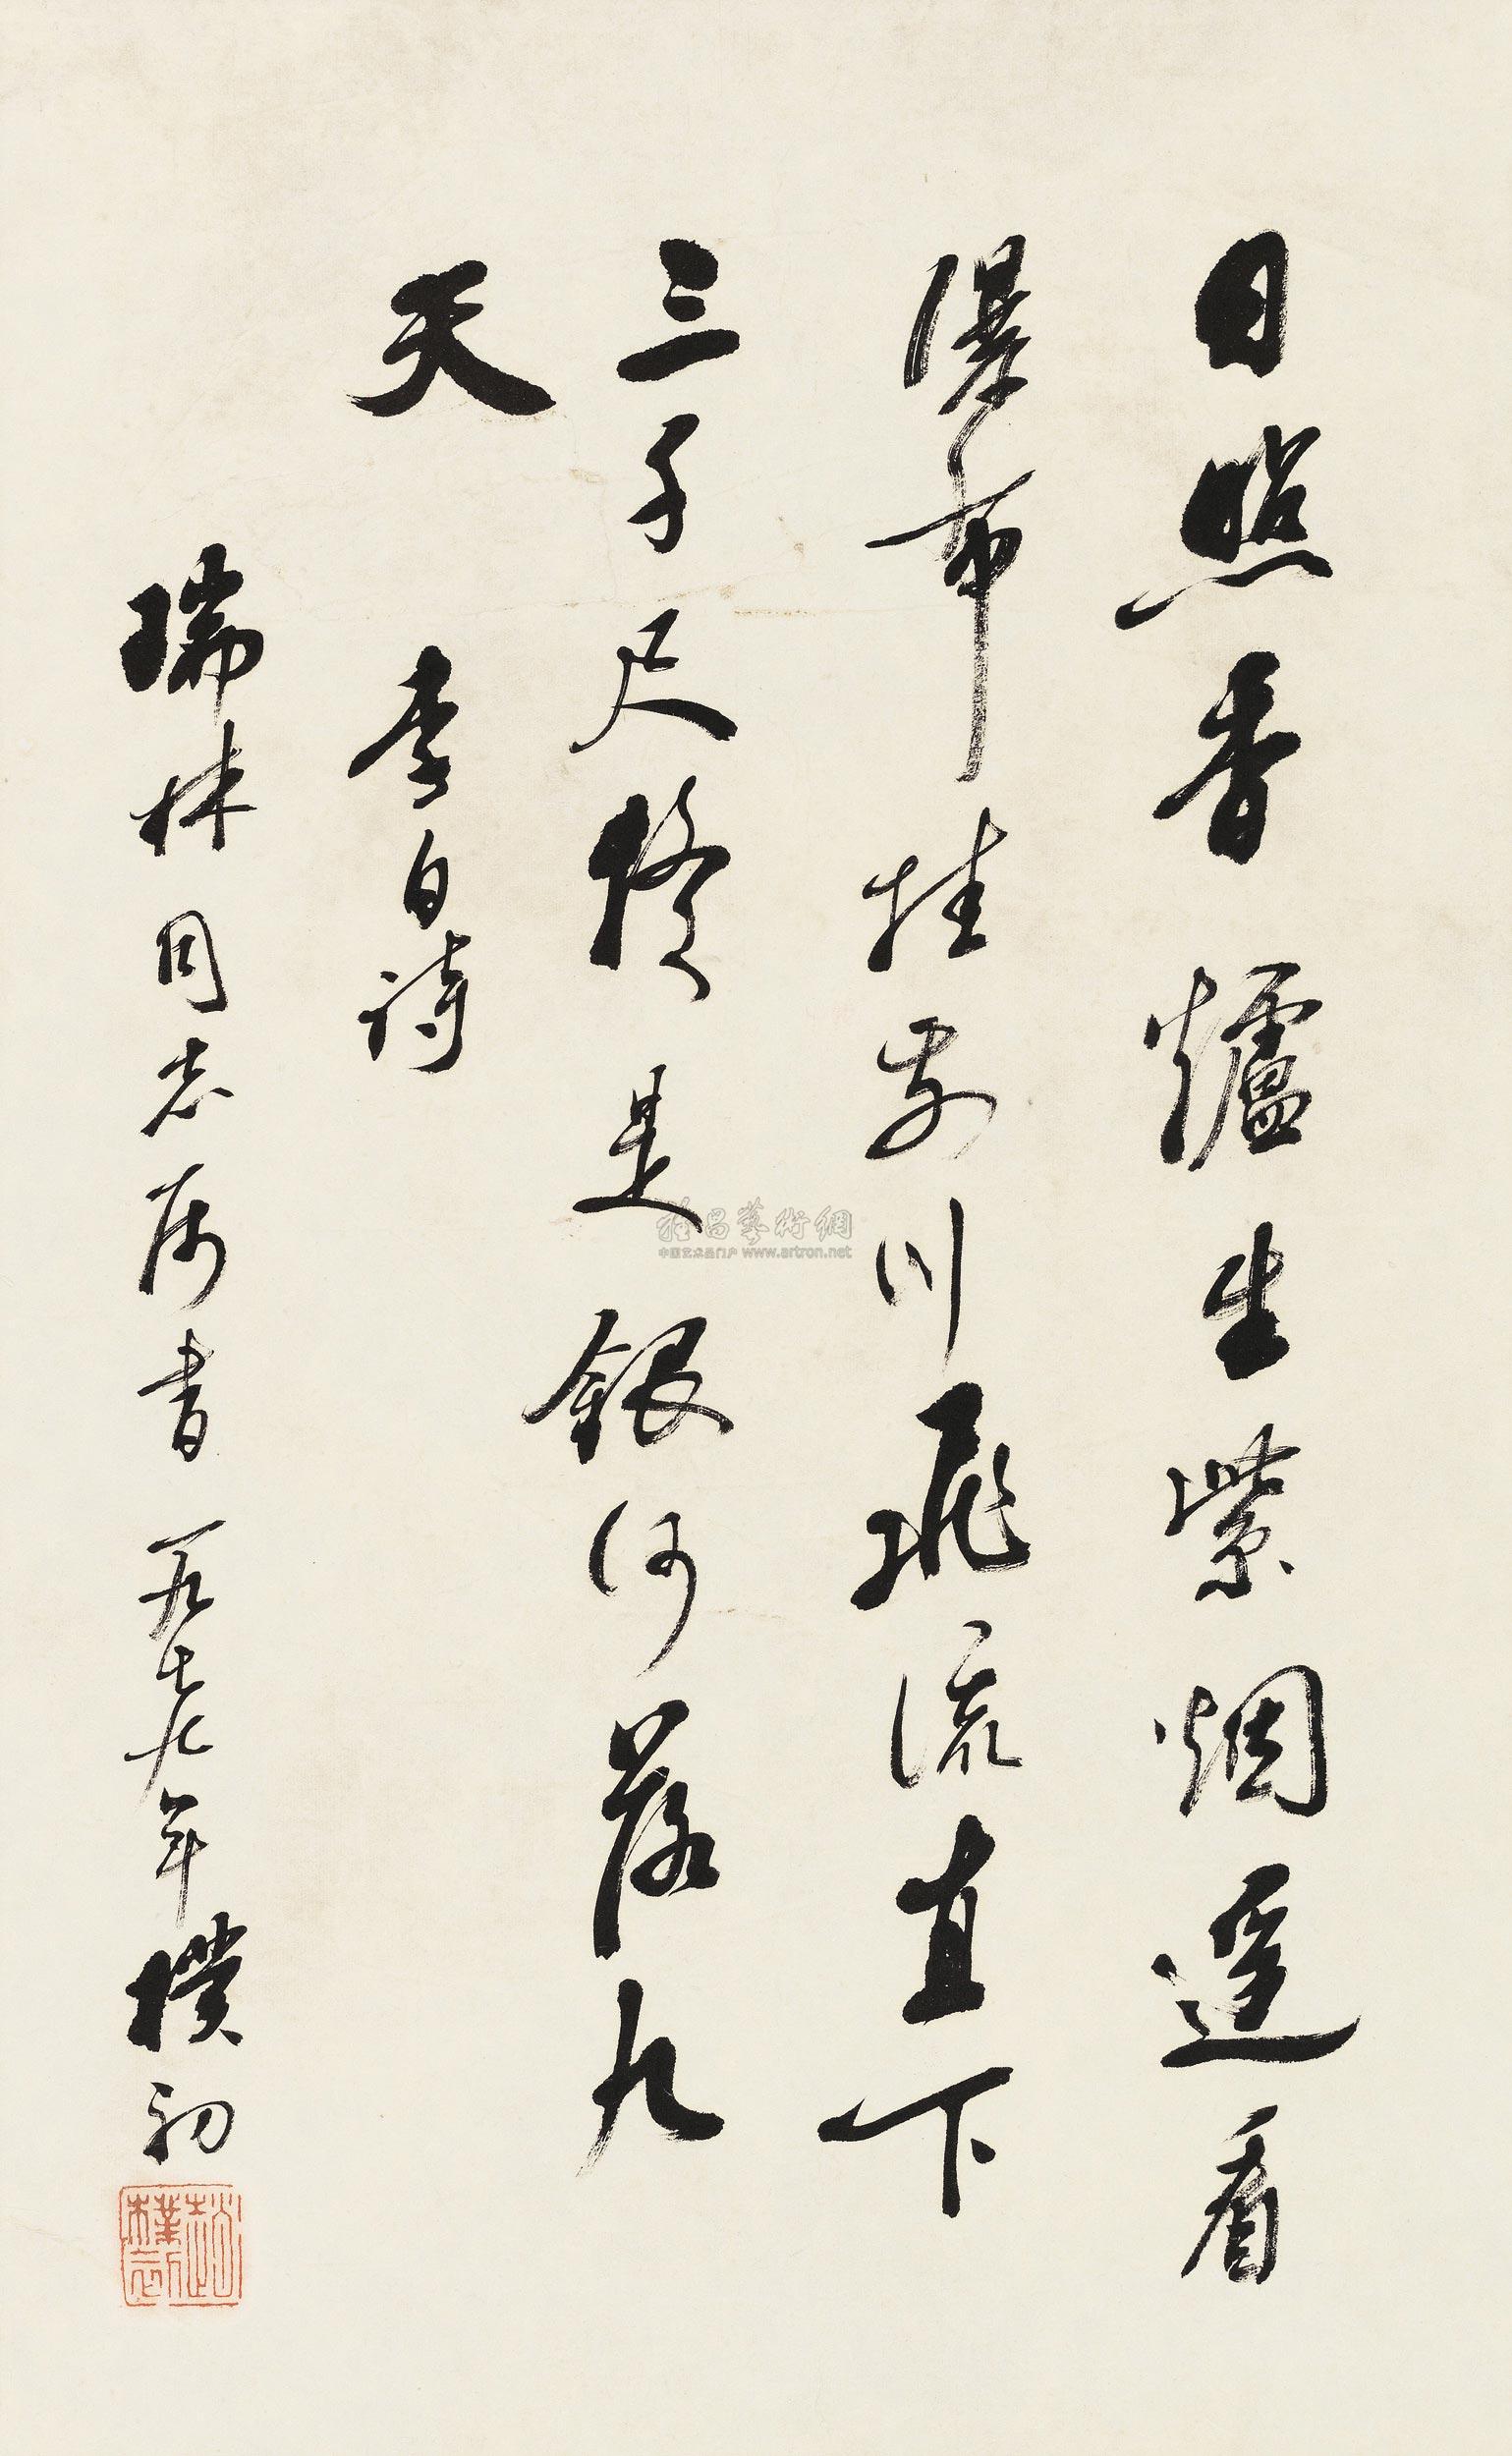 日照香爐生紫烟遥看
瀑布挂前川飛流直下
三千尺疑是銀河落九
天
李白詩
瑞林同志属書 一九七九年 樸初
趙樸初
雅昌藝術網
中国艺术品门户 www.artron.net